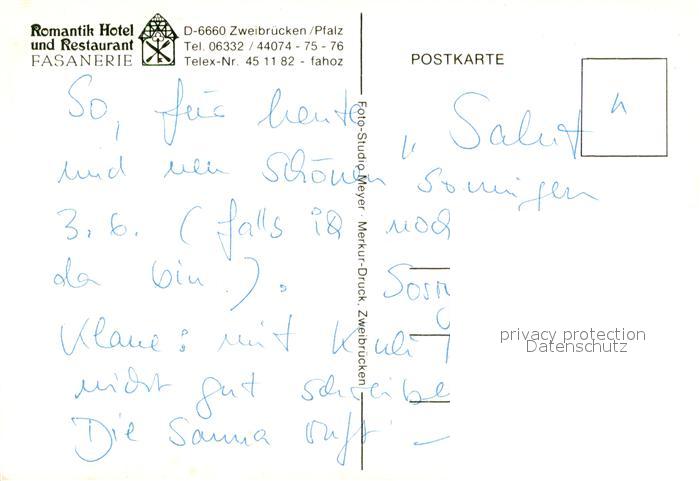 Romantik Hotel
und Restaurant
FASANERIE
D-6660 Zweibrücken/Pfalz
Tel. 06332 / 44074 - 75 - 76
Telex-Nr. 45 11 82 - fahoz
POSTKARTE
Foto-Studio Meyer · Merkur-Druck, Zweibrücken
So, für heute „Salut“
und nen schönen sonnigen
3. 6. (falls ich noch
da bin).
mit Kuli
nicht gut schreibe
Die Sauna ruft –
privacy protection
Datenschutz